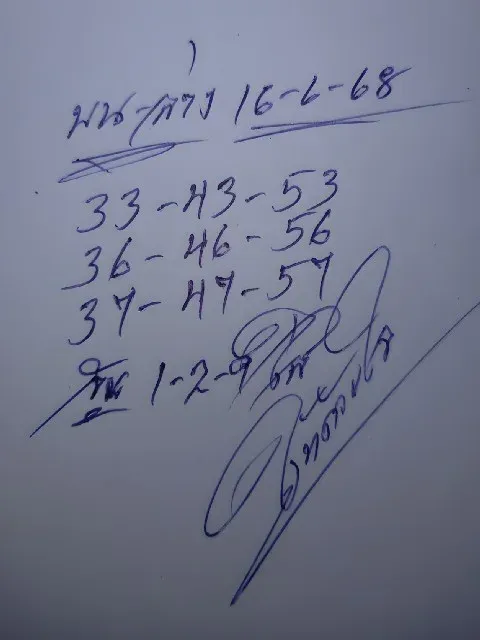 บน-ล่าง 16-6-68
33-43-53
36-46-56
37-47-57
1-2-9